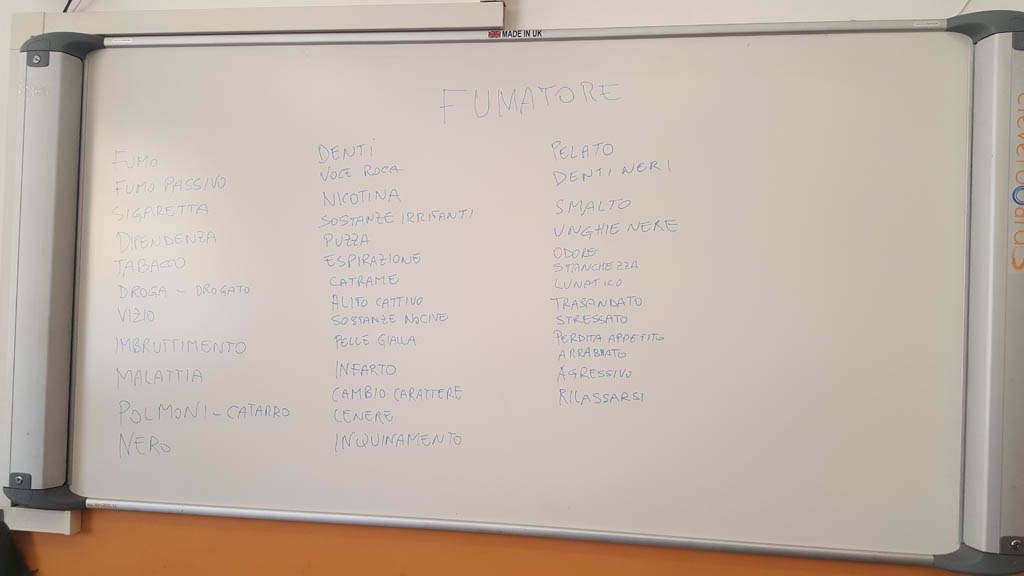 MADE IN UK
FUMATORE
FUMO
FUMO PASSIVO
SIGARETTA
DIPENDENZA
TABACCO
DROGA - DROGATO
VIZIO
IMBRUTTIMENTO
MALATTIA
POLMONI - CATARRO
NERO
DENTI
VOCE ROCA
NICOTINA
SOSTANZE IRRITANTI
PUZZA
ESPIRAZIONE
CATRAME
ALITO CATTIVO
SOSTANZE NOCIVE
PELLE GIALLA
INFARTO
CAMBIO CARATTERE
CENERE
INQUINAMENTO
PELATO
DENTI NERI
SMALTO
UNGHIE NERE
ODORE
STANCHEZZA
LUNATICO
TRASANDATO
STRESSATO
PERDITA APPETITO
ARRABBIATO
AGRESSIVO
RILASSARSI
cleverboards